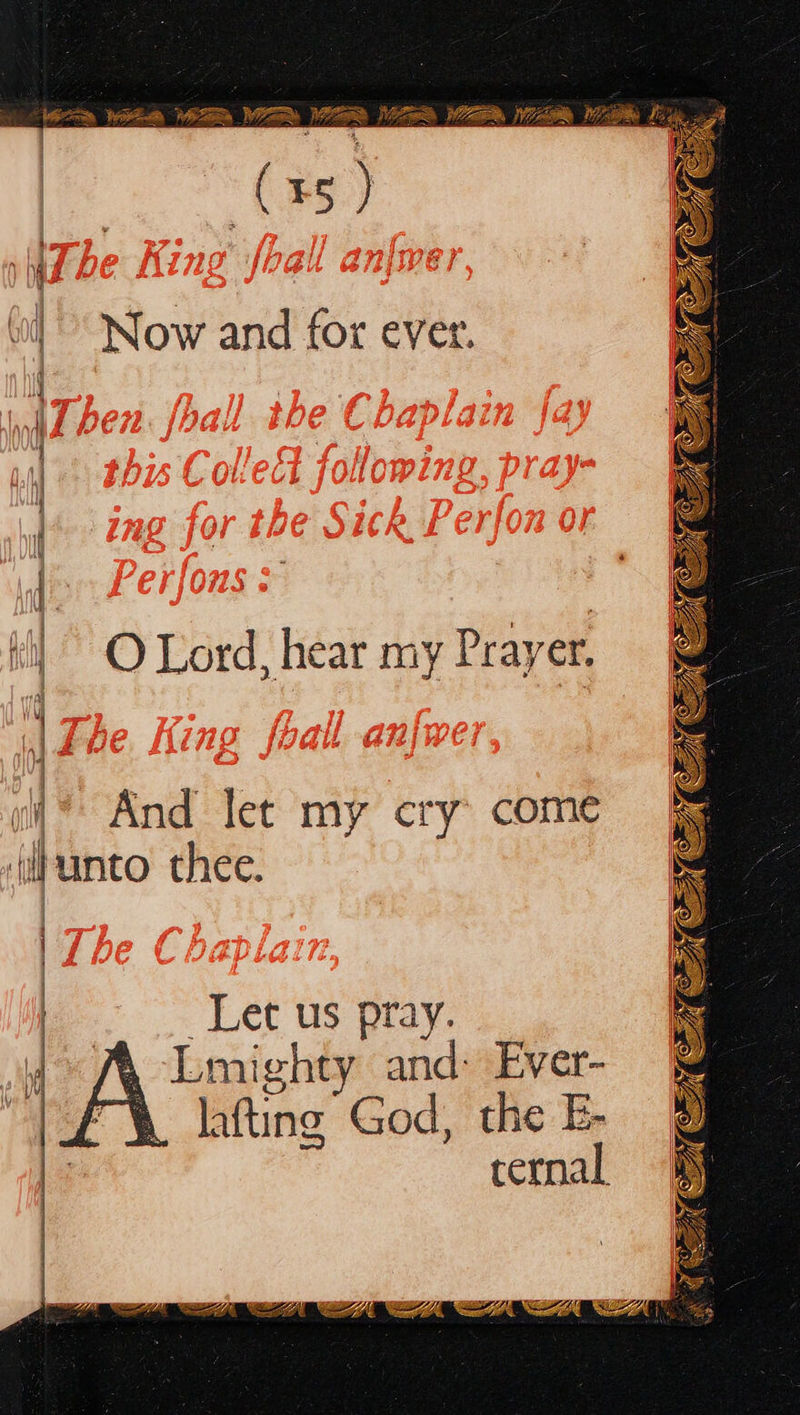 (15)
The King ſhall anſwer,
Now and for ever.
Then ſhall the Chaplain ſay
this Collect following, pray-
ing for the Sick Perſon or
Perſons:
O Lord, hear my Prayer.
The King ſhall anſwer,
And let my cry come
unto thee.
The Chaplain,
Let us pray.
ALmighty and Ever-
laſting God, the E-
ternal